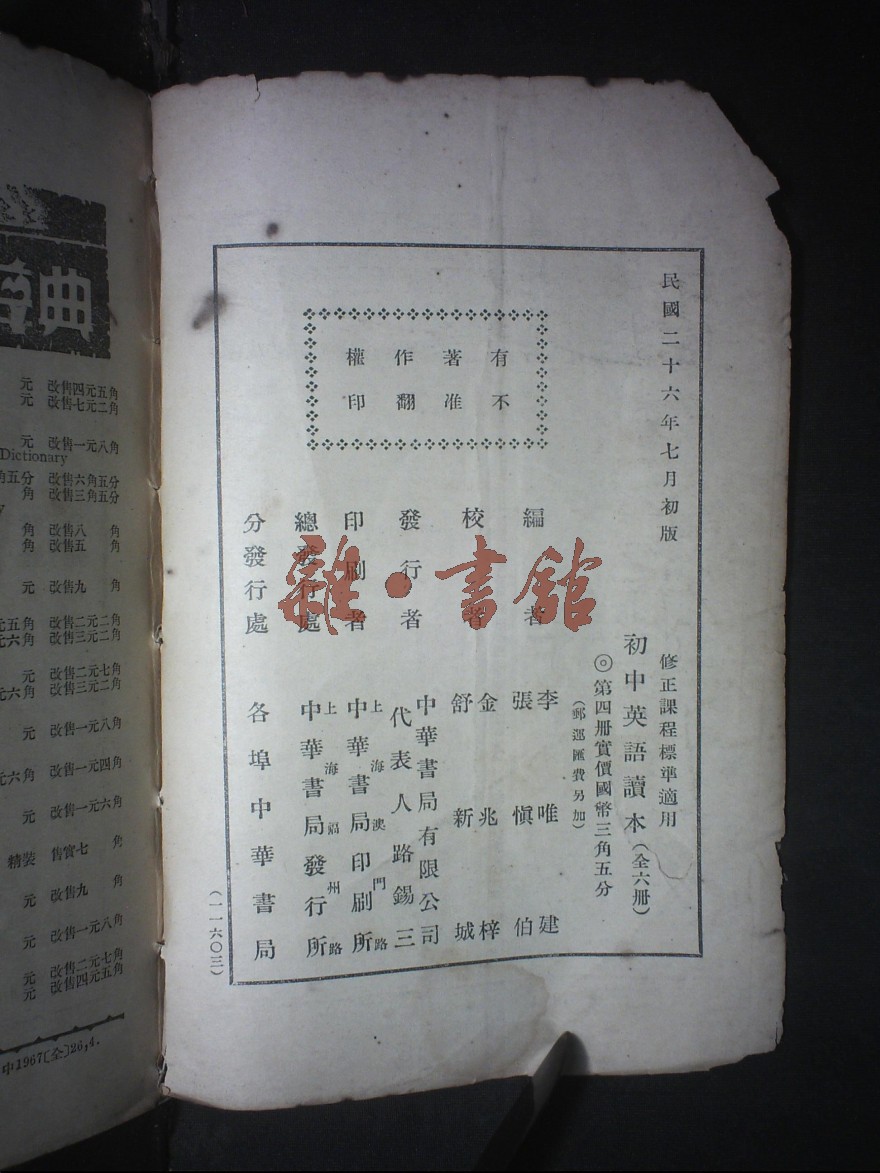 民國二十六年七月初版
有著作權
不准翻印
修正課程標準適用
初中英語讀本(全六册)
◎第四册實價國幣三角五分
(郵運匯費另加)
編著者
李唯建
張慎伯
校者
金兆梓
舒新城
發行者
中華書局有限公司
代表人路錫三
印刷者
上海澳門路
中華書局印刷所
總發行處
上海福州路
中華書局發行所
分發行處
各埠中華書局
(一一六〇三)
雜·書館
典
元 改售四元五角
元 改售七元二角
元 改售一元八角
Dictionary
角五分 改售六角五分
角 改售三角五分
角 改售八角
角 改售五角
元 改售九角
元五角 改售二元二角
元六角 改售三元二角
元 改售二元七角
元六角 改售三元二角
元 改售一元八角
元六角 改售一元四角
元 改售一元六角
精裝 售實七角
元 改售九角
元 改售一元八角
元 改售二元七角
元 改售四元五角
中1967(全)26,4.